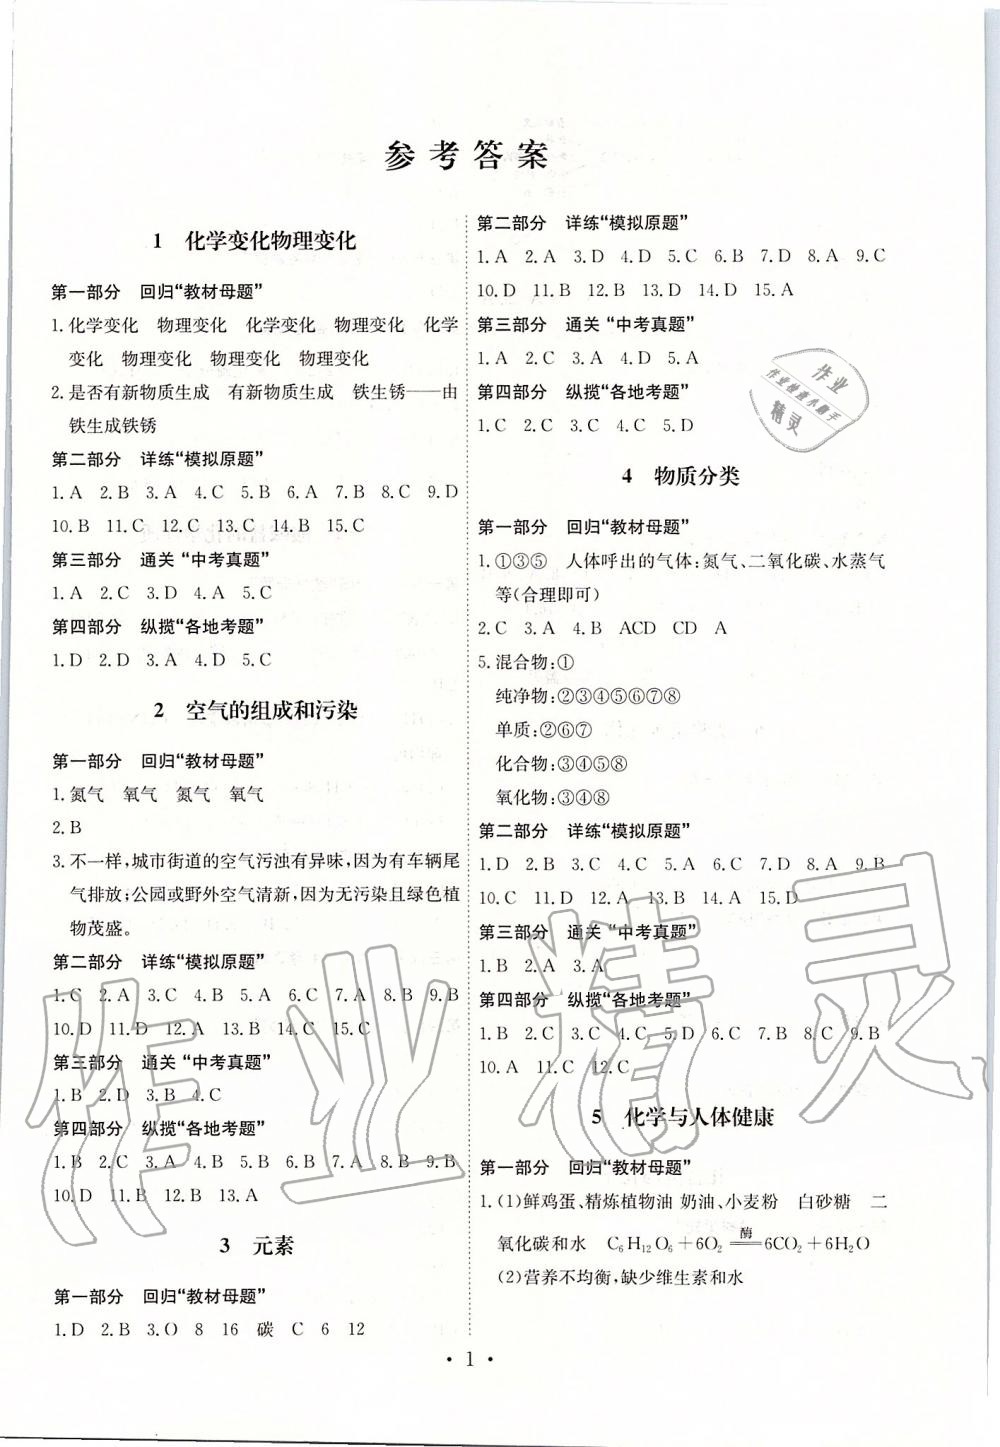 参考答案
1 化学变化物理变化
第一部分 回归“教材母题”
1.化学变化 物理变化 化学变化 物理变化 化学
变化 物理变化 物理变化 物理变化
2.是否有新物质生成 有新物质生成 铁生锈——由
铁生成铁锈
第二部分 详练“模拟原题”
1.A 2.B 3.A 4.C 5.B 6.A 7.B 8.C 9.D
10.B 11.C 12.C 13.C 14.B 15.C
第三部分 通关 “中考真题”
1.A 2.C 3.D 4.A 5.C
第四部分 纵揽“各地考题”
1.D 2.D 3.A 4.D 5.C
2 空气的组成和污染
第一部分 回归“教材母题”
1.氮气 氧气 氮气 氧气
2.B
3.不一样,城市街道的空气污浊有异味,因为有车辆尾
气排放;公园或野外空气清新,因为无污染且绿色植
物茂盛。
第二部分 详练“模拟原题”
1.C 2.A 3.C 4.B 5.B 6.C 7.A 8.B 9.B
10.D 11.D 12.A 13.B 14.C 15.C
第三部分 通关 “中考真题”
1.B 2.D 3.B 4.C
第四部分 纵揽“各地考题”
1.B 2.C 3.A 4.B 5.B 6.C 7.B 8.B 9.B
10.D 11.D 12.B 13.A
3 元素
第一部分 回归“教材母题”
1.D 2.B 3.O 8 16 碳 C 6 12
第二部分 详练“模拟原题”
1.A 2.A 3.D 4.D 5.C 6.B 7.D 8.A 9.C
10.D 11.B 12.B 13.D 14.D 15.A
第三部分 通关 “中考真题”
1.A 2.C 3.A 4.D 5.A
第四部分 纵揽“各地考题”
1.C 2.C 3.C 4.C 5.D
作业
作业检查小助手
精灵
4 物质分类
第一部分 回归“教材母题”
1.①③⑤ 人体呼出的气体:氮气、二氧化碳、水蒸气
等(合理即可)
2.C 3.A 4.B ACD CD A
5.混合物:①
纯净物:②③④⑤⑥⑦⑧
单质:②⑥⑦
化合物:③④⑤⑧
氧化物:③④⑧
第二部分 详练“模拟原题”
1.D 2.B 3.C 4.A 5.C 6.C 7.D 8.A 9.B
10.C 11.D 12.A 13.B 14.A 15.D
第三部分 通关 “中考真题”
1.B 2.A 3.A
第四部分 纵揽“各地考题”
1.B 2.C 3.C 4.C 5.D 6.C 7.B 8.C 9.B
10.A 11.C 12.C
5 化学与人体健康
第一部分 回归“教材母题”
1.(1)鲜鸡蛋、精炼植物油 奶油、小麦粉 白砂糖 二
氧化碳和水 C₆H₁₂O₆+6O₂ 酶══ 6CO₂+6H₂O
(2)营养不均衡,缺少维生素和水
作业精灵
• 1 •